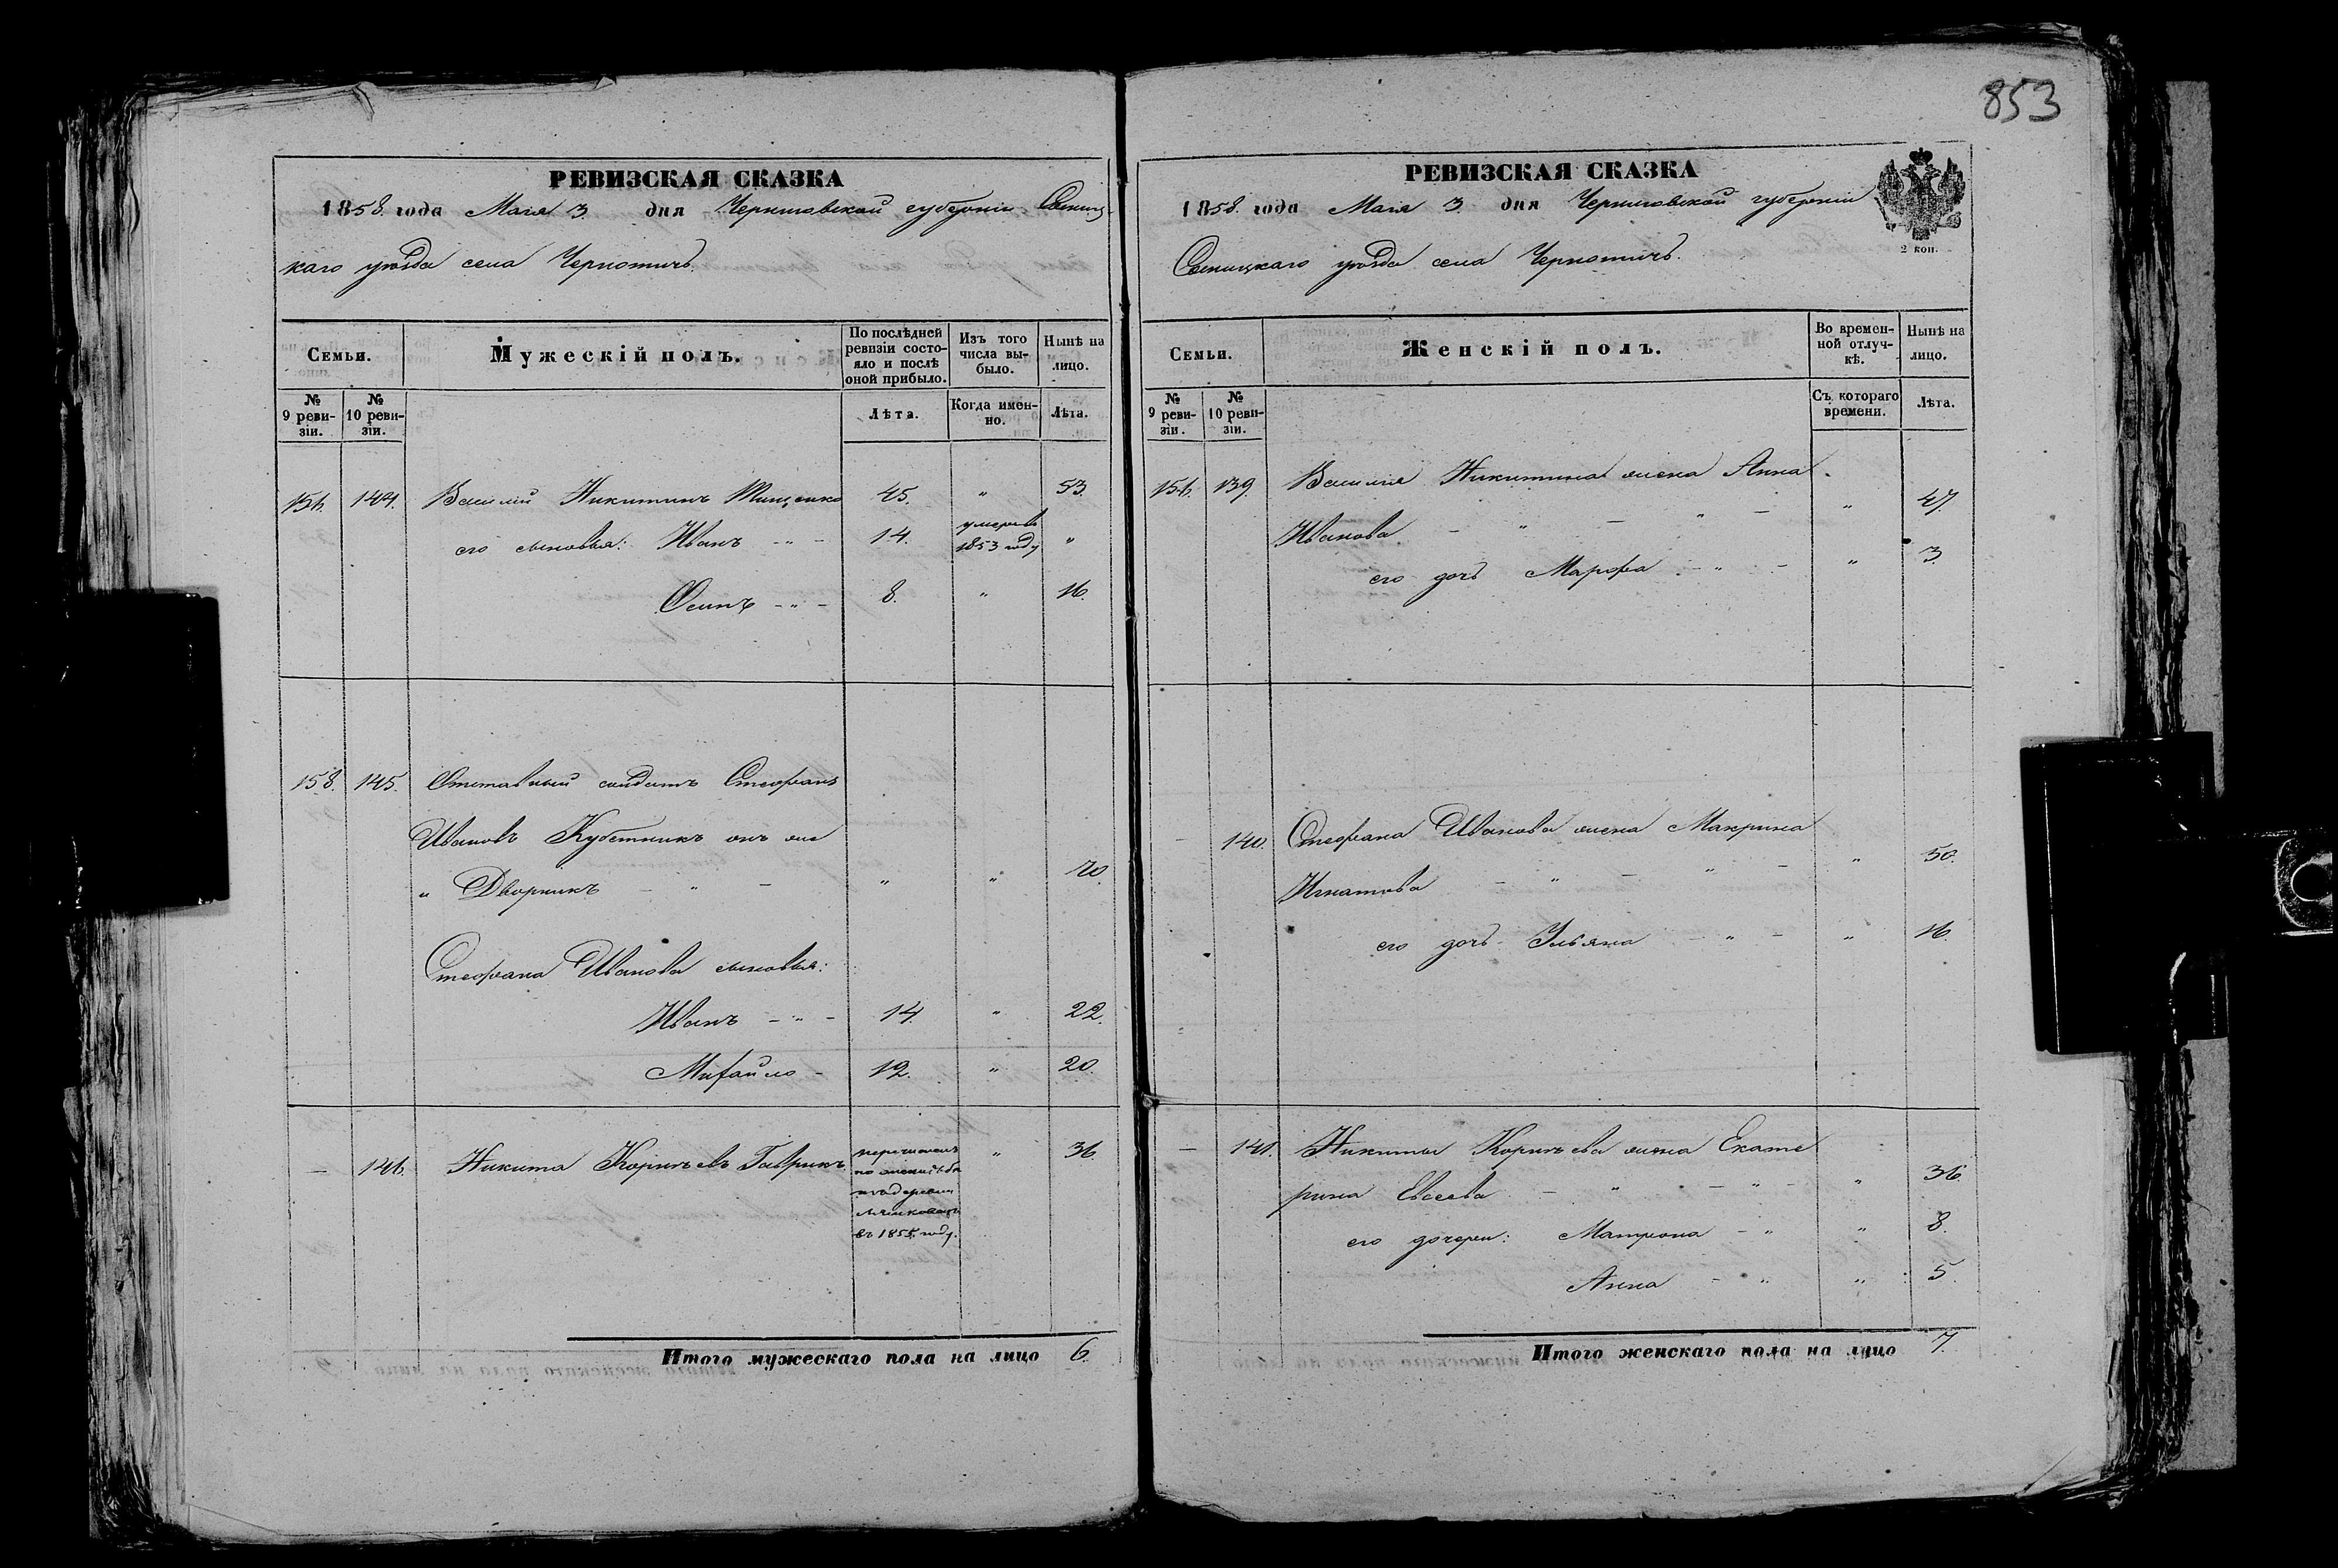 853
РЕВИЗСКАЯ СКАЗКА
1858. года Маия 3. дня Черниговской губерніи Сосниц-
каго уѣзда села Чернотичъ.
Семьи.
Мужескій полъ.
По послѣдней ревизіи состо-яло и послѣ оной прибыло.
Изъ того числа вы-было.
Нынѣ на лицо.
№ 9 реви-зіи.
№ 10 реви-зіи.
Лѣта.
Когда имен-но.
Лѣта.
144. Василій Никитинъ Тищенко 45. " 53.
его сыновья: Иванъ - " - 14. умеръ въ 1853 году "
Осипъ - " - 8. " 16.
158. 145. Отставный солдатъ Стефанъ
Ивановъ Кубетникъ онъ же
" Дворникъ - " - " " 70.
Стефана Иванова сыновья:
Иванъ - " - 14. " 22.
Михайло - 12. " 20.
— 146. Никита Корнѣевъ Гаврикъ " 36
въ 1855 году.
Итого мужескаго пола на лицо 6.
РЕВИЗСКАЯ СКАЗКА
1858. года Маия 3. дня Черниговской губерніи
Сосницкаго уѣзда села Чернотичъ.
2 коп.
Семьи.
Женскій полъ.
Во времен-ной отлуч-кѣ.
Нынѣ на лицо.
№ 9 реви-зіи.
№ 10 реви-зіи.
Съ котораго времени.
Лѣта.
139. Василія Никитина жена Анна
Иванова - " - " - " 47.
его дочь Марфа - " - " 3.
- 140. Стефана Иванова жена Макрина
Игнатова - " - " - " 50.
его дочь Ульяна - " - " 16.
— 141. Никиты Корнѣева жена Екате
рина Евсеева - " - " - " 36.
его дочери: Матрона - " " 8.
Анна - " " 5.
Итого женскаго пола на лицо 7.